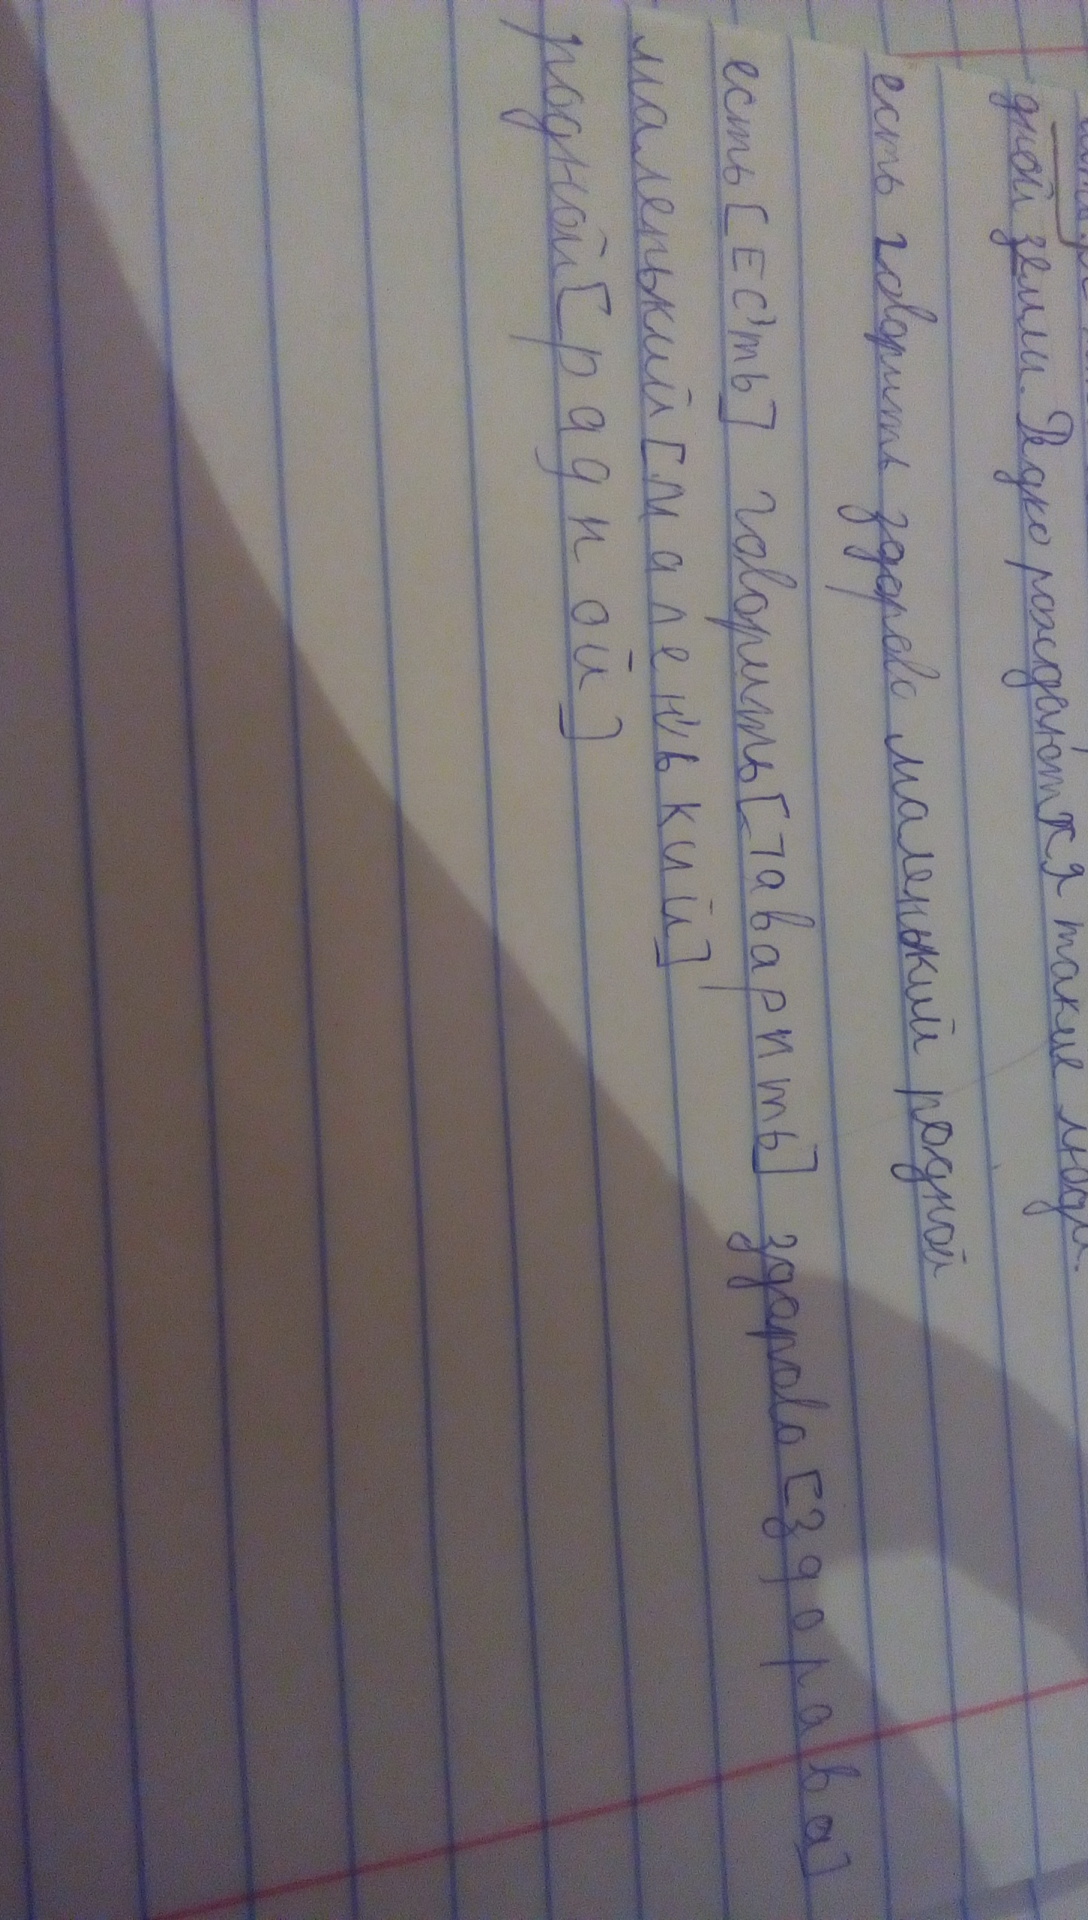 дной земли. Редко рождаются такие люди.
есть говорить здорово маленький родной
есть [ЕС'ть] говорить [гаварить] здорово [здорава]
маленький [мален'ький]
родной [радной]